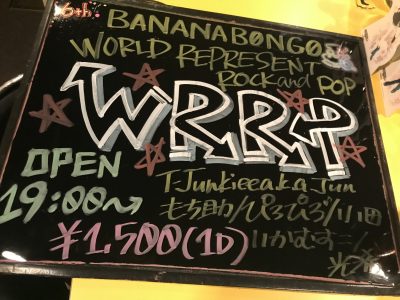 6th.
BANANABONGOS
WORLD REPRESENT
ROCK and POP
WRRP
OPEN
19:00〜
¥1,500(1D)
T-Junkieeaka Jun
もち助/ぴろぴぶ/小田
いかむす